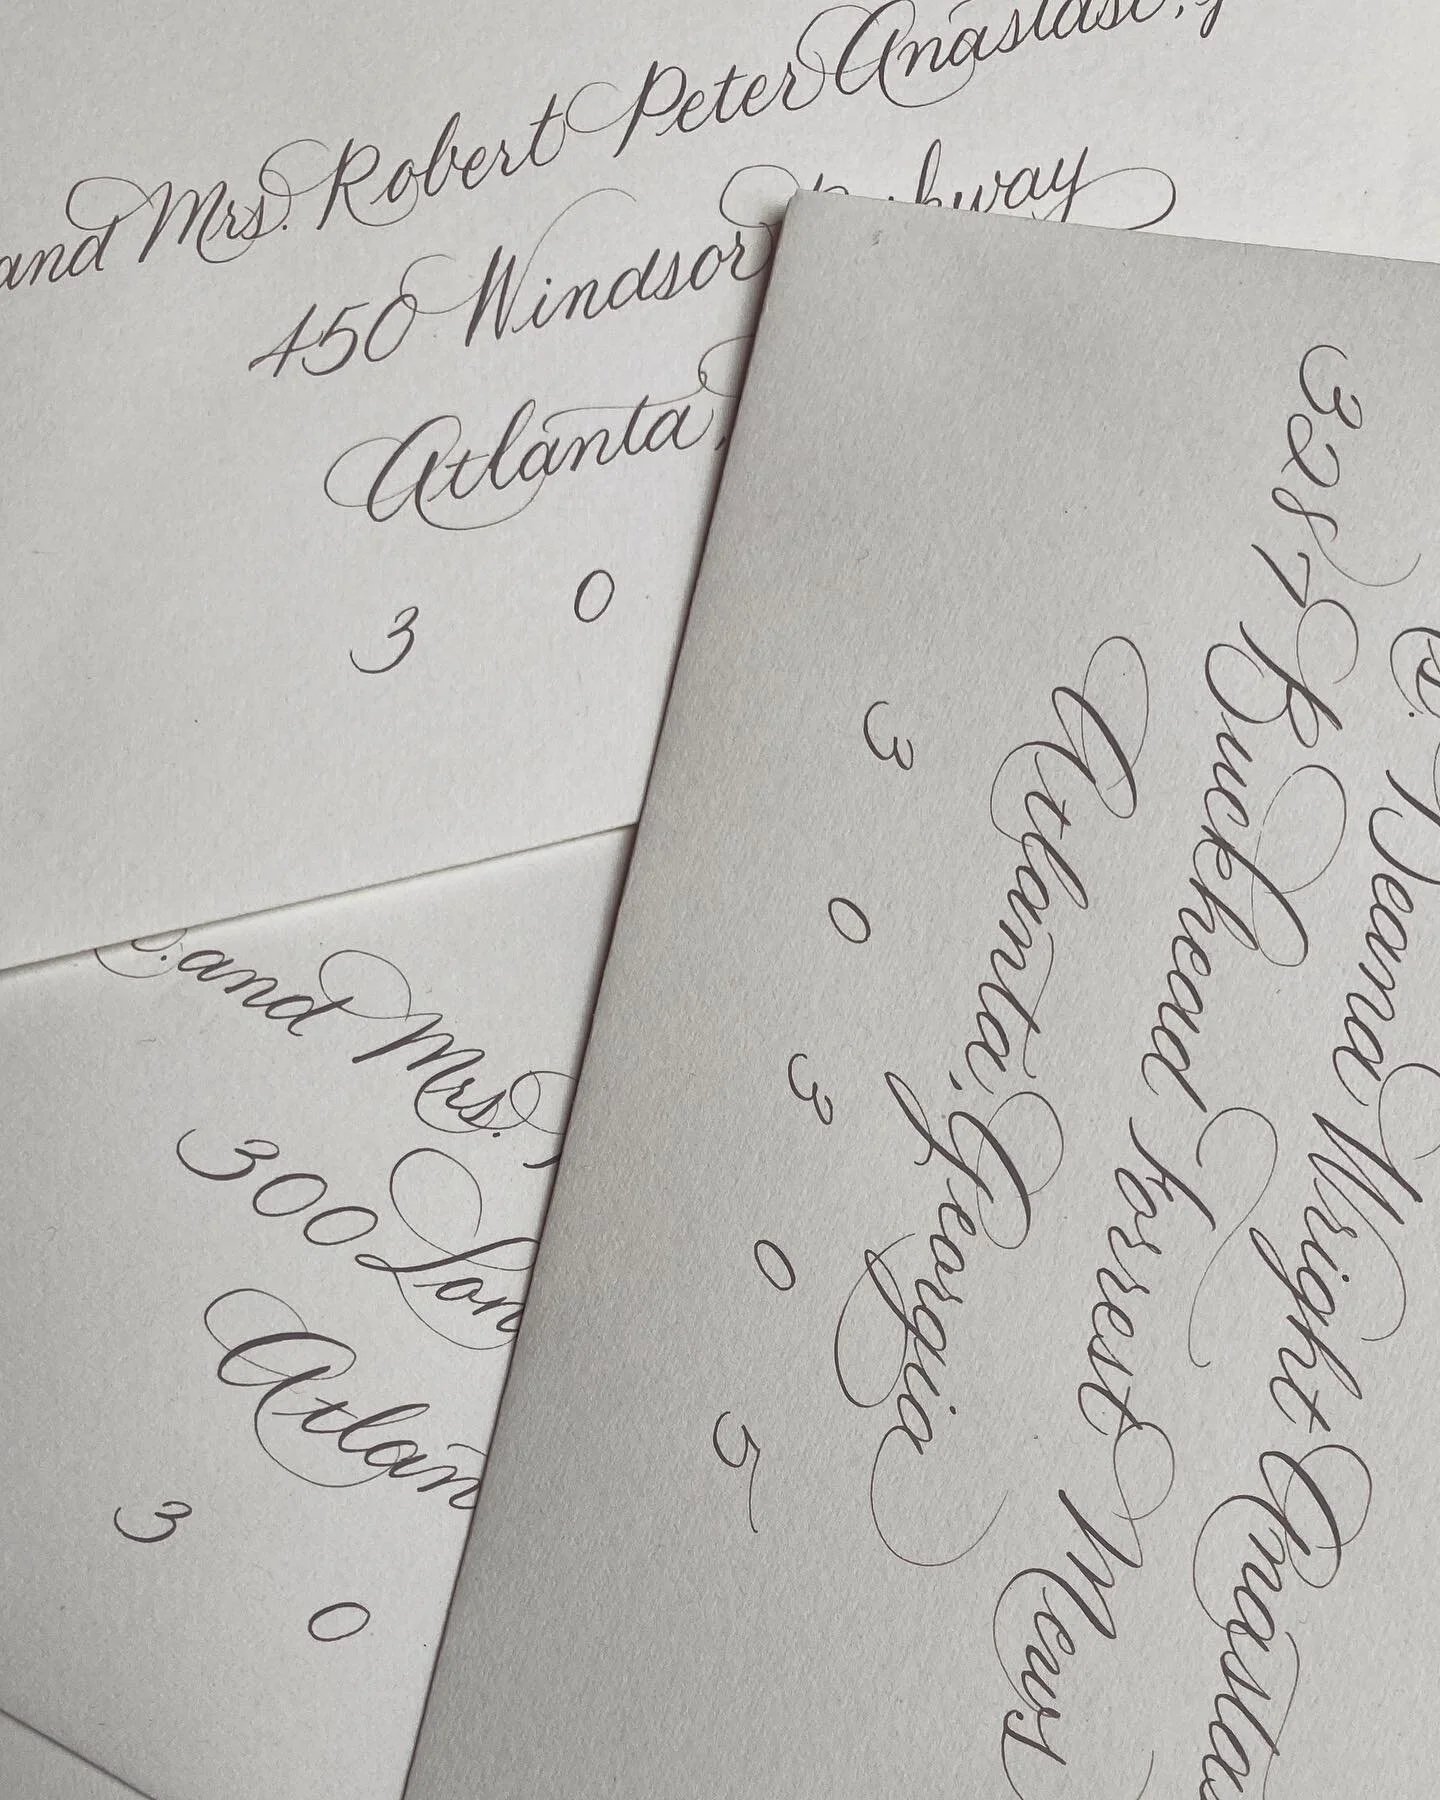 and Mrs. Robert Peter Anastasi, J
450 Windsor Parkway
Atlanta,
3 0
and Mrs.
300 Lon
Atlan
3 0
Deana Wright Anastas
3284 Buckhead Forrest Mews
Atlanta, Georgia
3 0 3 0 5